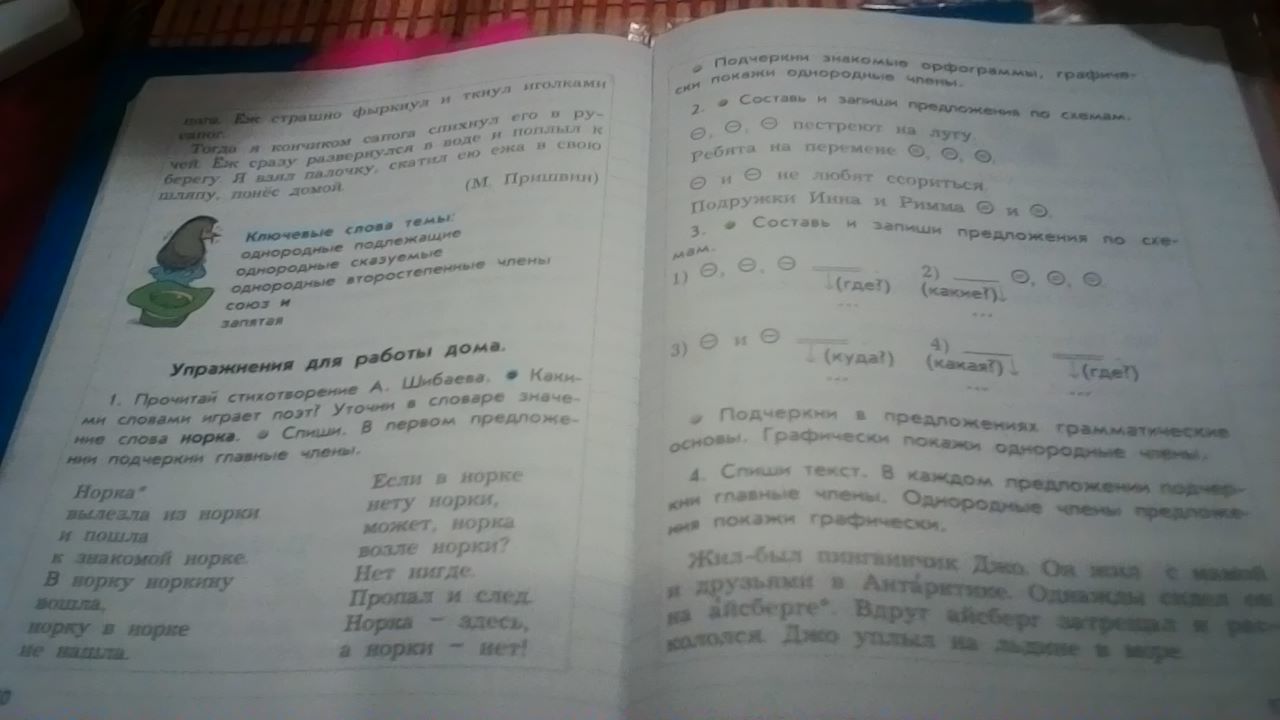 пага. Ёж страшно фыркнул и ткнул иголками
сапог.
Тогда я кончиком сапога спихнул его в ру-
чей. Ёж сразу развернулся в воде и поплыл к
берегу. Я взял палочку, скатил ею ежа в свою
шляпу, понёс домой.
(М. Пришвин)
Ключевые слова темы:
однородные подлежащие
однородные сказуемые
однородные второстепенные члены
союз и
запятая
Упражнения для работы дома.
1. Прочитай стихотворение А. Шибаева. Каки-
ми словами играет поэт? Уточни в словаре значе-
ние слова норка. Спиши. В первом предложе-
нии подчеркни главные члены.
Норка*
вылезла из норки
и пошла
к знакомой норке.
В норку норкину
вошла,
норку в норке
не нашла.
Если в норке
нету норки,
может, норка
возле норки?
Нет нигде.
Пропал и след.
Норка – здесь,
а норки – нет!
0
Подчеркни знакомые орфограммы, графиче-
ски покажи однородные члены.
2. Составь и запиши предложения по схемам.
, , пестреют на лугу.
Ребята на перемене , , .
и не любят ссориться.
Подружки Инна и Римма и .
3. Составь и запиши предложения по схе-
мам.
1) , , (где?) ...
2) (какие?) ... , , .
3) и (куда?) ...
4) (какая?) ... (где?) ...
Подчеркни в предложениях грамматические
основы. Графически покажи однородные члены.
4. Спиши текст. В каждом предложении подчер-
кни главные члены. Однородные члены предложе-
ния покажи графически.
Жил-был пингвинчик Джо. Он жил с мамой
и друзьями в Анта́рктике. Однажды сидел он
на а́йсберге*. Вдруг айсберг затрещал и рас-
кололся. Джо уплыл на льдине в море.